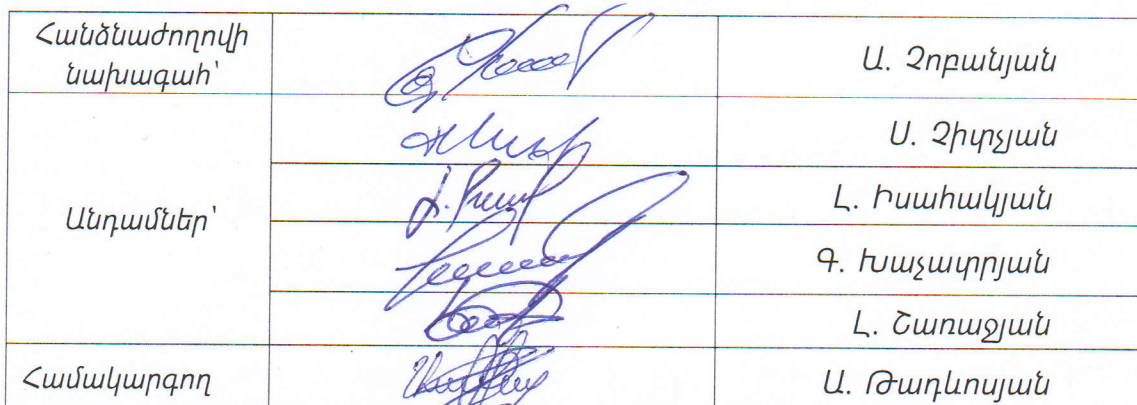 Հանձնաժողովի
նախագահ՝
Ա. Չոբանյան
Ս. Չիտչյան
Անդամներ՝
Լ. Իսահակյան
Գ. Խաչատրյան
Լ. Շառաջյան
Համակարգող
Ա. Թադևոսյան